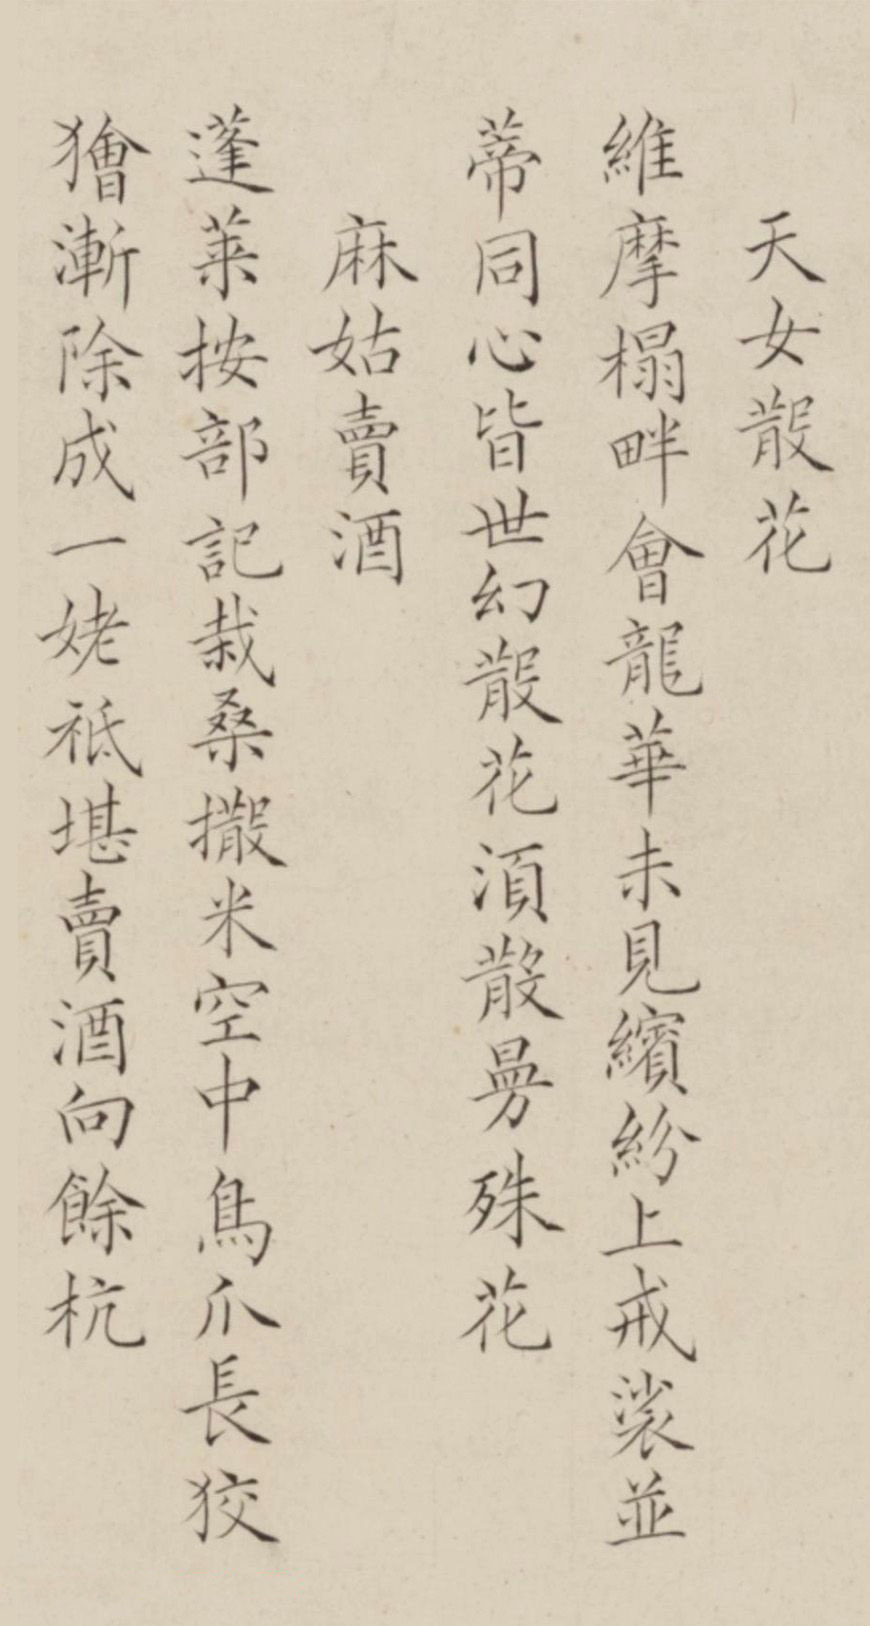 天女散花
維摩榻畔會龍華未見繽紛上戒裟並
蒂同心皆世幻散花須散曼殊花
麻姑賣酒
蓬萊按部記栽桑撒米空中鳥爪長狡
獪漸除成一姥祗堪賣酒向餘杭